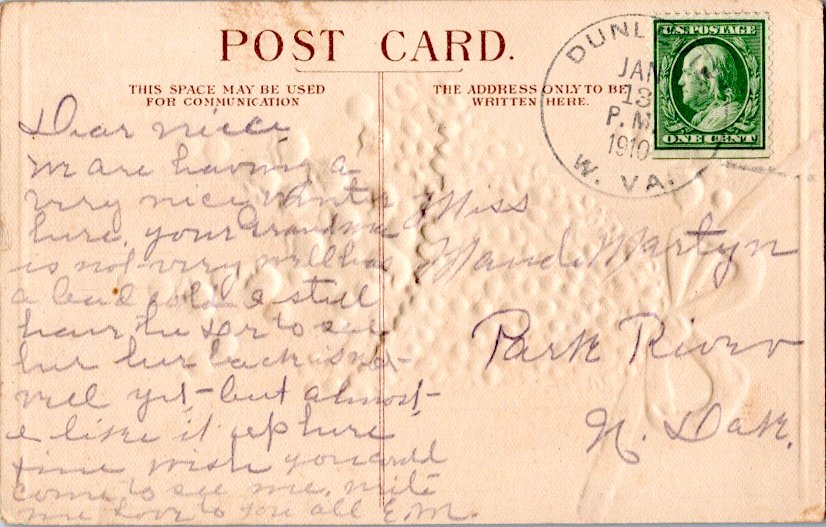 POST CARD.
THIS SPACE MAY BE USED
FOR COMMUNICATION
THE ADDRESS ONLY TO BE
WRITTEN HERE.
U.S. POSTAGE
ONE CENT
DUNL
JAN
13
P. M.
1910
W. VA.
Dear niece
we are having a
very nice winter
here, your Grandma
is not very well has
a bad cold I still
have the Dr to see
her her back is not
well yet - but almost -
I like it up here
fine wish you could
come to see me. with
love to you all E.M.
Miss
Maud Martyn
Park River
N. Dak.